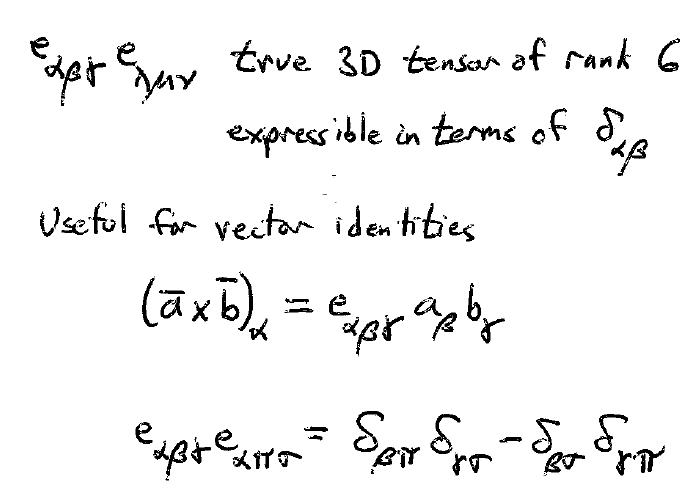 e_{αβγ} e_{λμν} true 3D tensor of rank 6
expressible in terms of δ_{αβ}
Useful for vector identities
(ā x b̄)_α = e_{αβγ} a_β b_γ
e_{αβγ} e_{απσ} = δ_{βπ} δ_{γσ} - δ_{βσ} δ_{γπ}